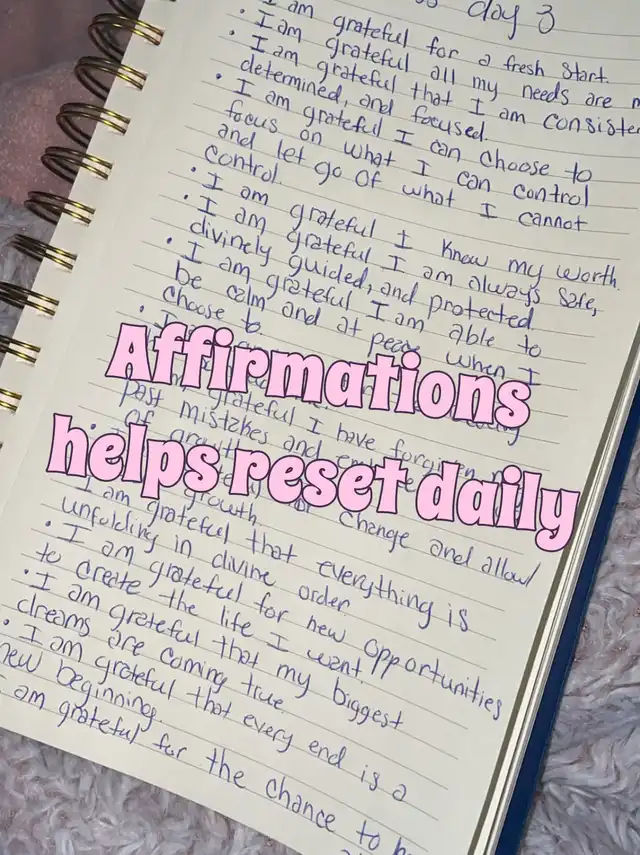 day 3
I am grateful for a fresh start.
• I am grateful all my needs are
• I am grateful that I am
determined, and focused.
• I am grateful I can choose to
focus on what I can control
and let go of what I cannot
control.
• I am grateful I know my worth.
• I am grateful I am always safe,
divinely guided, and protected.
• I am grateful I am able to
be calm and at peace when I
choose to
Affirmations
grateful I have forgiven
past mistakes and
helps reset daily
of growth
change and allow
growth.
I am grateful that everything is
unfolding in divine order.
• I am grateful for new opportunities
to create the life I want.
• I am grateful that my biggest
dreams are coming true.
• I am grateful that every end is a
new beginning.
am grateful for the chance to